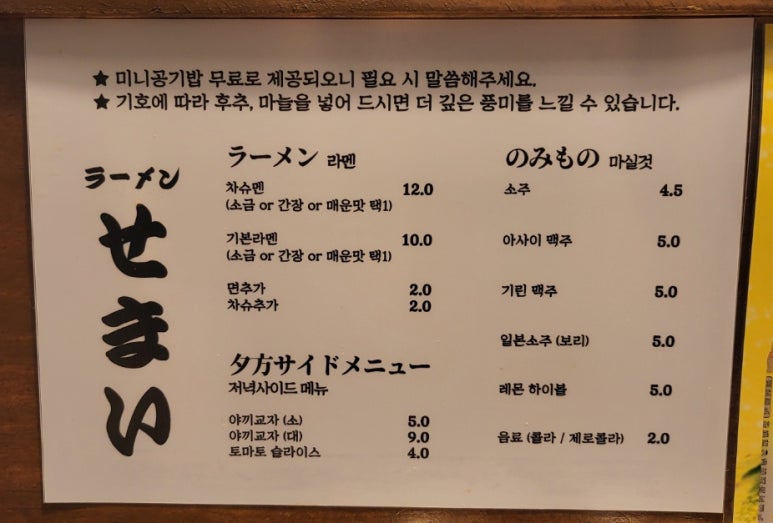 ★ 미니공기밥 무료로 제공되오니 필요 시 말씀해주세요.
★ 기호에 따라 후추, 마늘을 넣어 드시면 더 깊은 풍미를 느낄 수 있습니다.
ラーメン
せまい
ラーメン 라멘
차슈멘 12.0
(소금 or 간장 or 매운맛 택1)
기본라멘 10.0
(소금 or 간장 or 매운맛 택1)
면추가 2.0
차슈추가 2.0
夕方サイドメニュー
저녁사이드 메뉴
야끼교자 (소) 5.0
야끼교자 (대) 9.0
토마토 슬라이스 4.0
のみもの 마실것
소주 4.5
아사이 맥주 5.0
기린 맥주 5.0
일본소주 (보리) 5.0
레몬 하이볼 5.0
음료 (콜라 / 제로콜라) 2.0